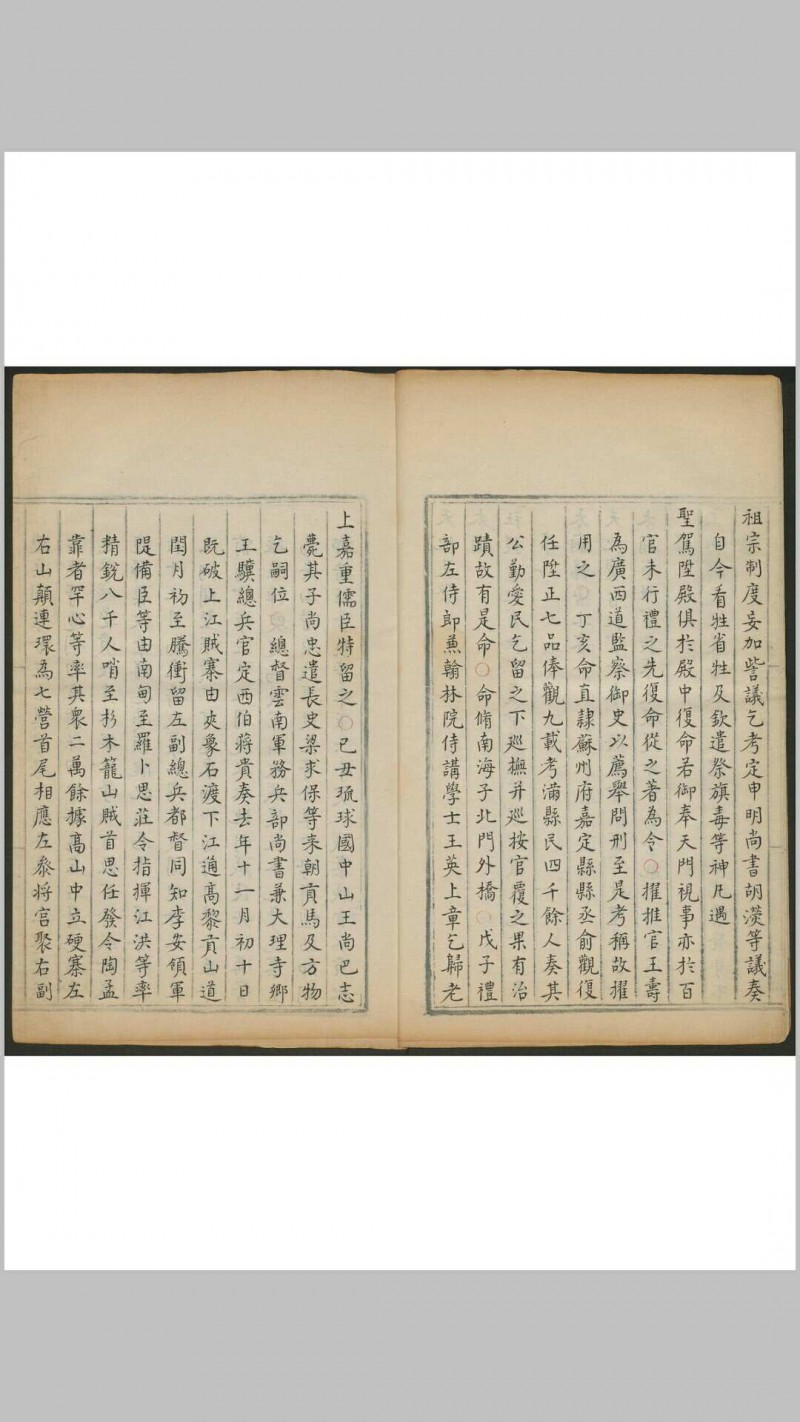 祖宗制度妄加訾議乞考定申明尚書胡濙等議奏
自今看牲省牲及欽遣祭旗毒等神凡遇
聖駕陞殿俱於殿中復命若御奉天門視事亦於百
官未行禮之先復命從之著為令○擢推官王壽
為廣西道監察御史以薦舉問刑至是考稱故擢
用之○丁亥命直隷蘇州府嘉定縣縣丞俞觀復
任陞正七品俸觀九載考滿縣民四千餘人奏其
公勤愛民乞留之下巡撫并巡按官覆之果有治
蹟故有是命○命脩南海子北門外橋○戊子禮
部左侍郎兼翰林院侍講學士王英上章乞歸老
上嘉重儒臣特留之○己丑琉球國中山王尚巴志
薨其子尚忠遣長史梁求保等来朝貢馬及方物
乞嗣位○總督雲南軍務兵部尚書兼大理寺卿
王驥總兵官定西伯蔣貴奏去年十一月初十日
既破上江賊寨由夾象石渡下江通高黎貢山道
閏月初至騰衝留左副總兵都督同知李安領軍
隄備臣等由南甸至羅卜思莊令指揮江洪等率
精銳八千人哨至杉木籠山賊首思任發令陶孟
靠者罕心等率其衆二萬餘據高山中立硬寨左
右山顛連環為七營首尾相應左叅将宮聚右副